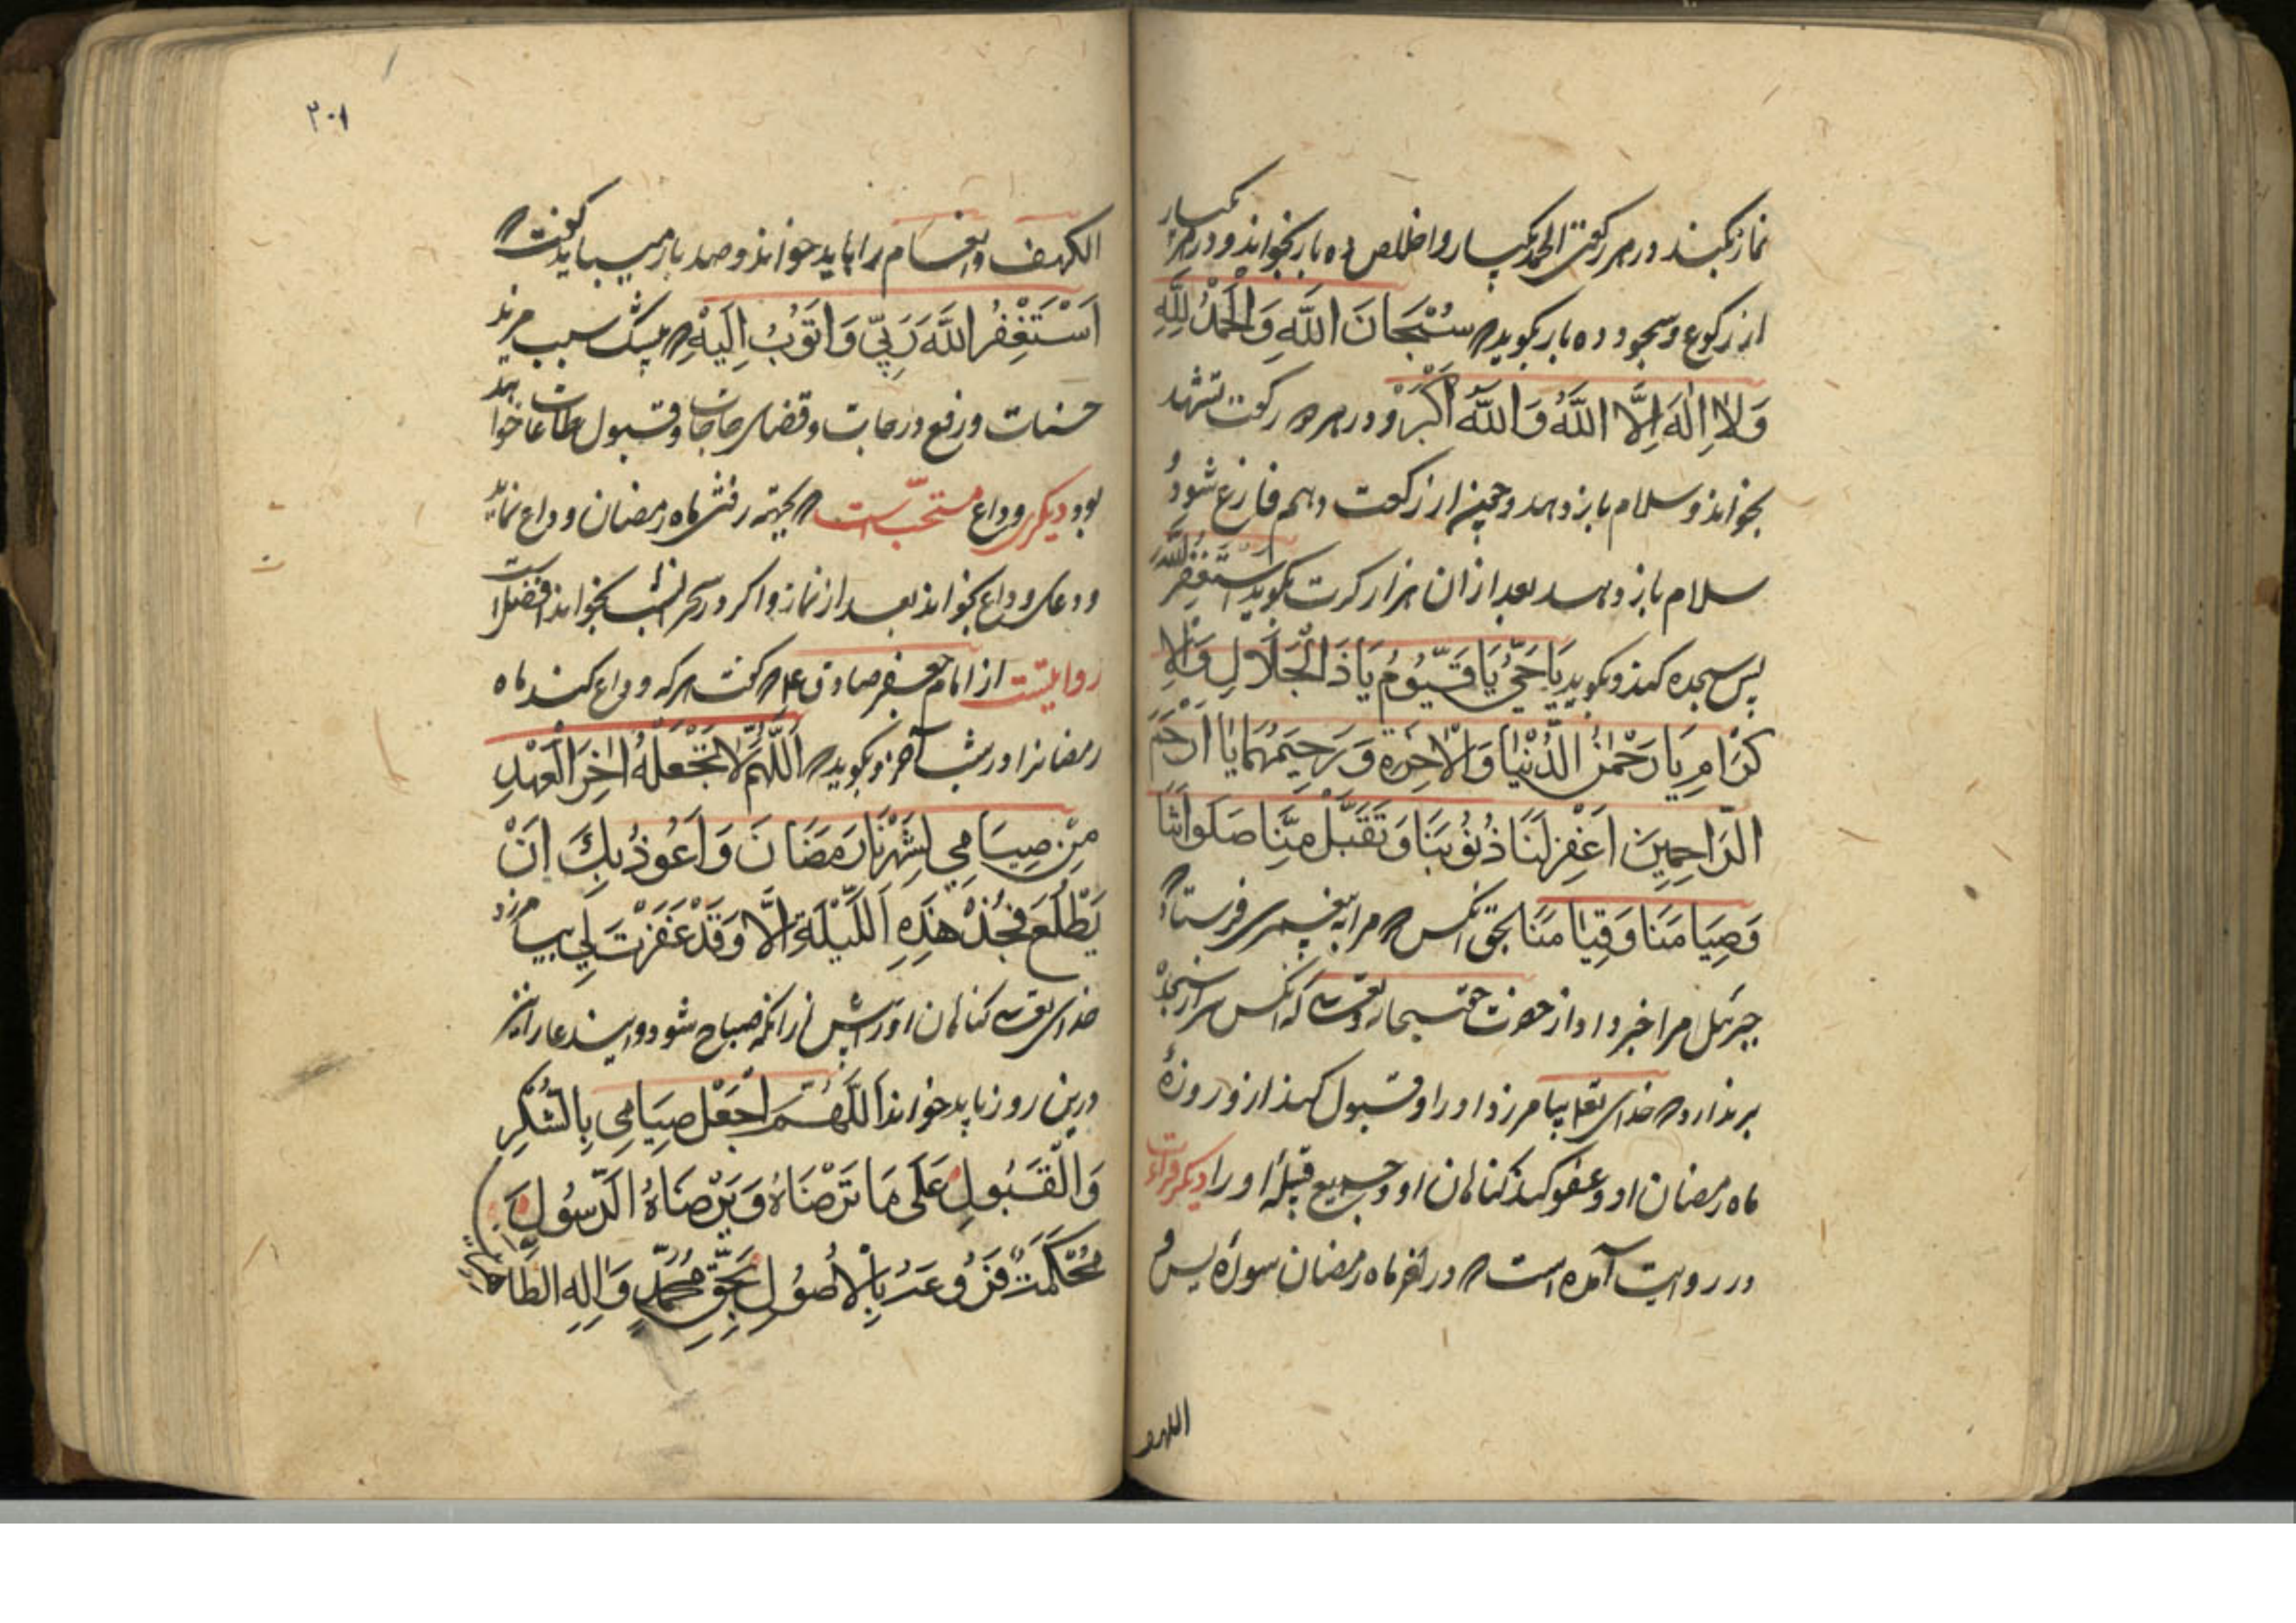 نماز بکند در هر رکعتی الحمد یکبار و اخلاص ده بار بخواند و در هر یکبار
از رکوع و سجود ده بار بکوید سُبْحَانَ اللَّهِ وَالْحَمْدُ لِلَّهِ
وَلَا اِلَهَ اِلَّا اللَّهُ وَاللَّهُ اَكْبَرْ و در هر دو رکعت تشهد
بخواند و سلام باز دهد و چون از رکعت دهم فارغ شود و
سلام باز دهد بعد از ان هزار کرت بکوید استغفر الله
پس سجده کند و بکوید يَا حَيُّ يَا قَيُّومُ يَا ذَا الْجَلَالِ وَالْاِ
كْرَامِ يَا رَحْمٰنُ الدُّنْيَا وَالْاٰخِرَةِ وَرَحِيمَهُمَا يَا اَرْحَمَ
الرَّاحِمِينَ اغْفِرْ لَنَا ذُنُوبَنَا وَتَقَبَّلْ مِنَّا صَلَوَاتَنَا
وَصِيَامَنَا وَقِيَامَنَا بحق انکس مرا به پیغمبری فرستاد
جبرئیل مرا خبر داد از حضرت حق سبحانه و تعالی که انکس سر از سجده
برندارد خدای تعالی بیامرزد او را و قبول کند ازو روزهٔ
ماه رمضان او و عفو کند کناهان او و جمیع قبیلهٔ او را دیکر قراءت
در روایت آمده است در اخر ماه رمضان سورهٔ یس و
اللهم
۲۰۱
الکهف و انعام را باید خواند و صد بار میباید گفت
اَسْتَغْفِرُ اللَّهَ رَبِّي وَاَتُوبُ اِلَيْهِ بیشک سبب مزید
حسنات و رفع درجات و قضای حاجات و قبول طاعات خواهد
بود دیکر وداع مستحبّست بجهته رفتن ماه رمضان وداع نماید
و دعای وداع بخواند بعد از نماز و اکر در سحر انشب بخواند افضل است
روایتست از امام جعفر صادق ع گفت هر که وداع کند ماه
رمضانرا در شب آخر و بکوید اَللَّهُمَّ لَا تَجْعَلْهُ اٰخِرَ الْعَهْدِ
مِنْ صِيَامِي لِشَهْرِنَا رَمَضَانَ وَاَعُوذُ بِكَ اَنْ
يَطْلُعَ فَجْرُ هٰذِهِ اللَّيْلَةِ اِلَّا وَقَدْ غَفَرْتَ لِي بیامرزد
خدای تعالی کناهان او را پیش از انکه صباح شود و این دعا را نیز
درین روز باید خواند اَللَّهُمَّ اجْعَلْ صِيَامِي بِالشُّكْرِ
وَالْقَبُولِ عَلَى مَا تَرْضَاهُ وَيَرْضَاهُ الرَّسُولُ
مُحْكَمَةً فُرُوعُهُ بِالْاُصُولِ بِحَقِّ مُحَمَّدٍ وَاٰلِهِ الطَّاهِرِينَ